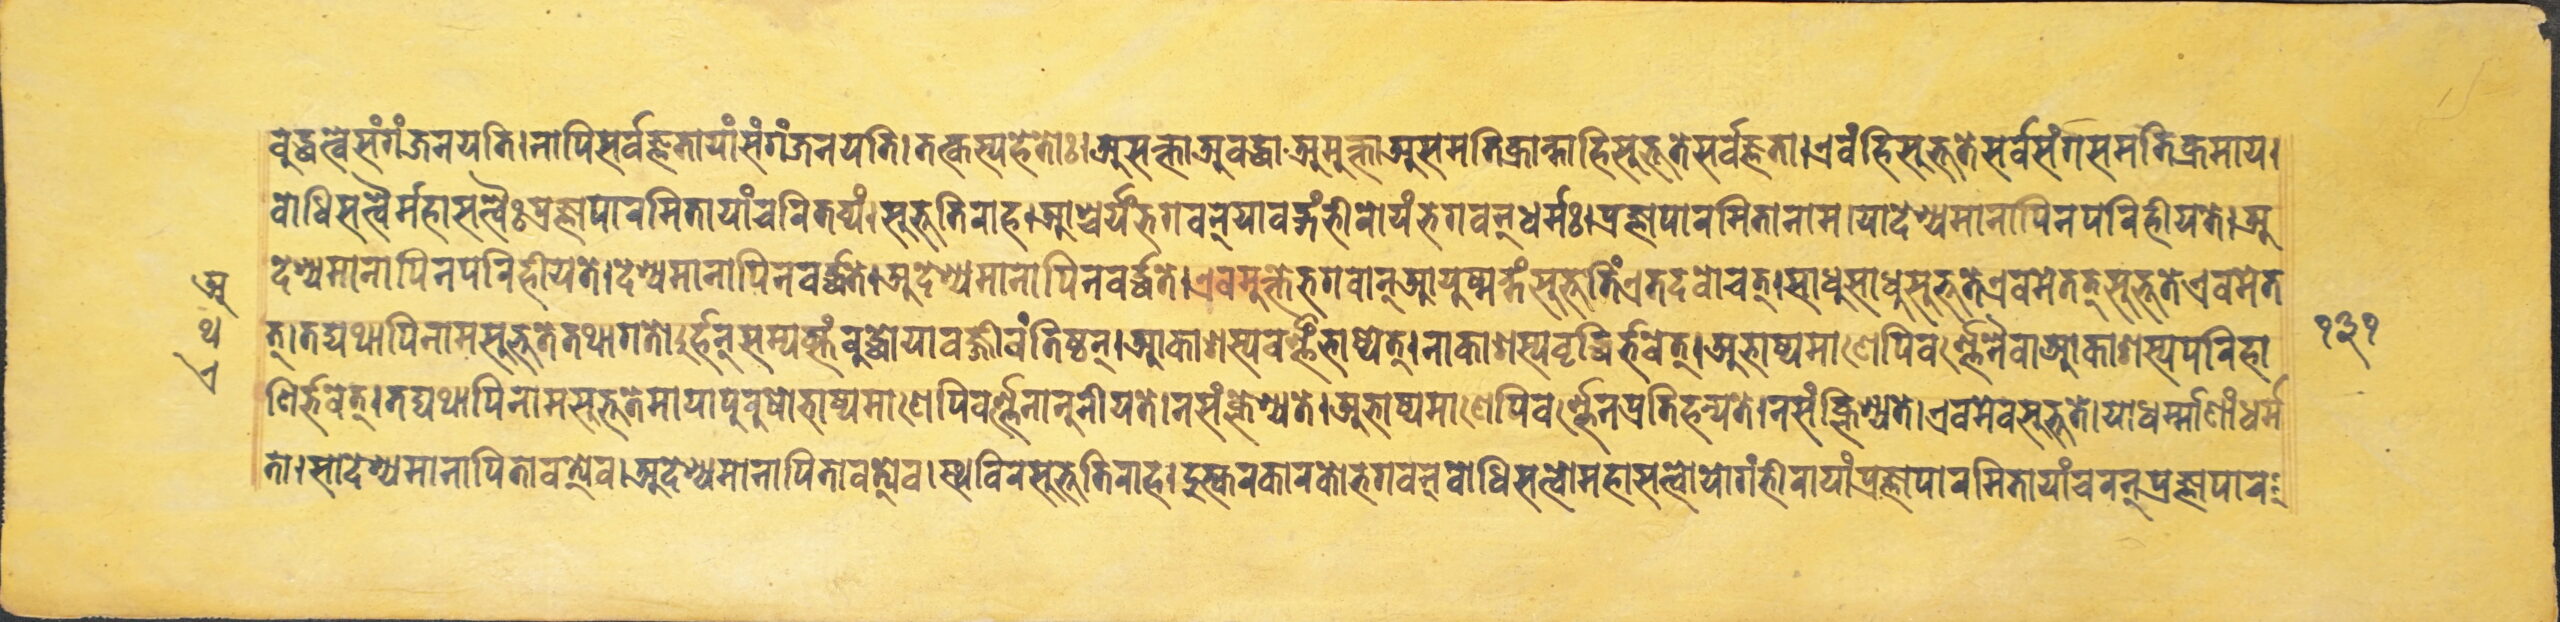 बुद्धत्वे संगं जनयति। नापि सर्वज्ञतायां संगं जनयति। तत्कस्य हेतोः। असक्ता अबद्धा अमुक्ता असमतिक्रान्ता हि सुभूते सर्वज्ञता। एवं हि सुभूते सर्वसंगसमतिक्रमाय।
बोधिसत्त्वैर्महासत्त्वैः प्रज्ञापारमितायां चरितव्यं। सुभूतिराह। आश्चर्यं भगवन् यावद्गंभीरोयं भगवन् धर्मः। प्रज्ञापारमिता नाम। या देश्यमानापि न परिहीयते। अ
देश्यमानापि न परिहीयते। देश्यमानापि न वर्द्धते। अदेश्यमानापि न वर्द्धते। एवमुक्ते भगवान् आयुष्मन्तं सुभूतिं एतदवोचत्। साधु साधु सुभूते एवमेतत् सुभूते एवमेत
त्। तद्यथापि नाम सुभूते तथागतोऽर्हन् सम्यक्संबुद्धो यावज्जीवं तिष्ठन्। आकाशस्य वर्ण्णं भाष्येत्। नाकाशस्य वृद्धिर्भवेत्। अभाष्यमाणेपि वर्ण्णे नैवा आकाशस्य परिहा
णिर्भवेत्। तद्यथापि नाम सुभूते मायापुरुषो भाष्यमाणेपि वर्ण्णे नानुनीयते। न संक्लेश्यते। अभाष्यमाणेपि वर्ण्णे न प्रतिहन्यते। न संक्लिश्यते। एवमेव सुभूते। या धर्म्माणां धर्म
ता। सा देश्यमानापि तावत्येव। अदेश्यमानापि तावत्येव। स्थविर सुभूतिराह। दुस्करकारको भगवन् बोधिसत्त्वो महासत्त्वो यो गंभीरायां प्रज्ञापारमितायां चरन् प्रज्ञापार
अ
थ
ए
१३१